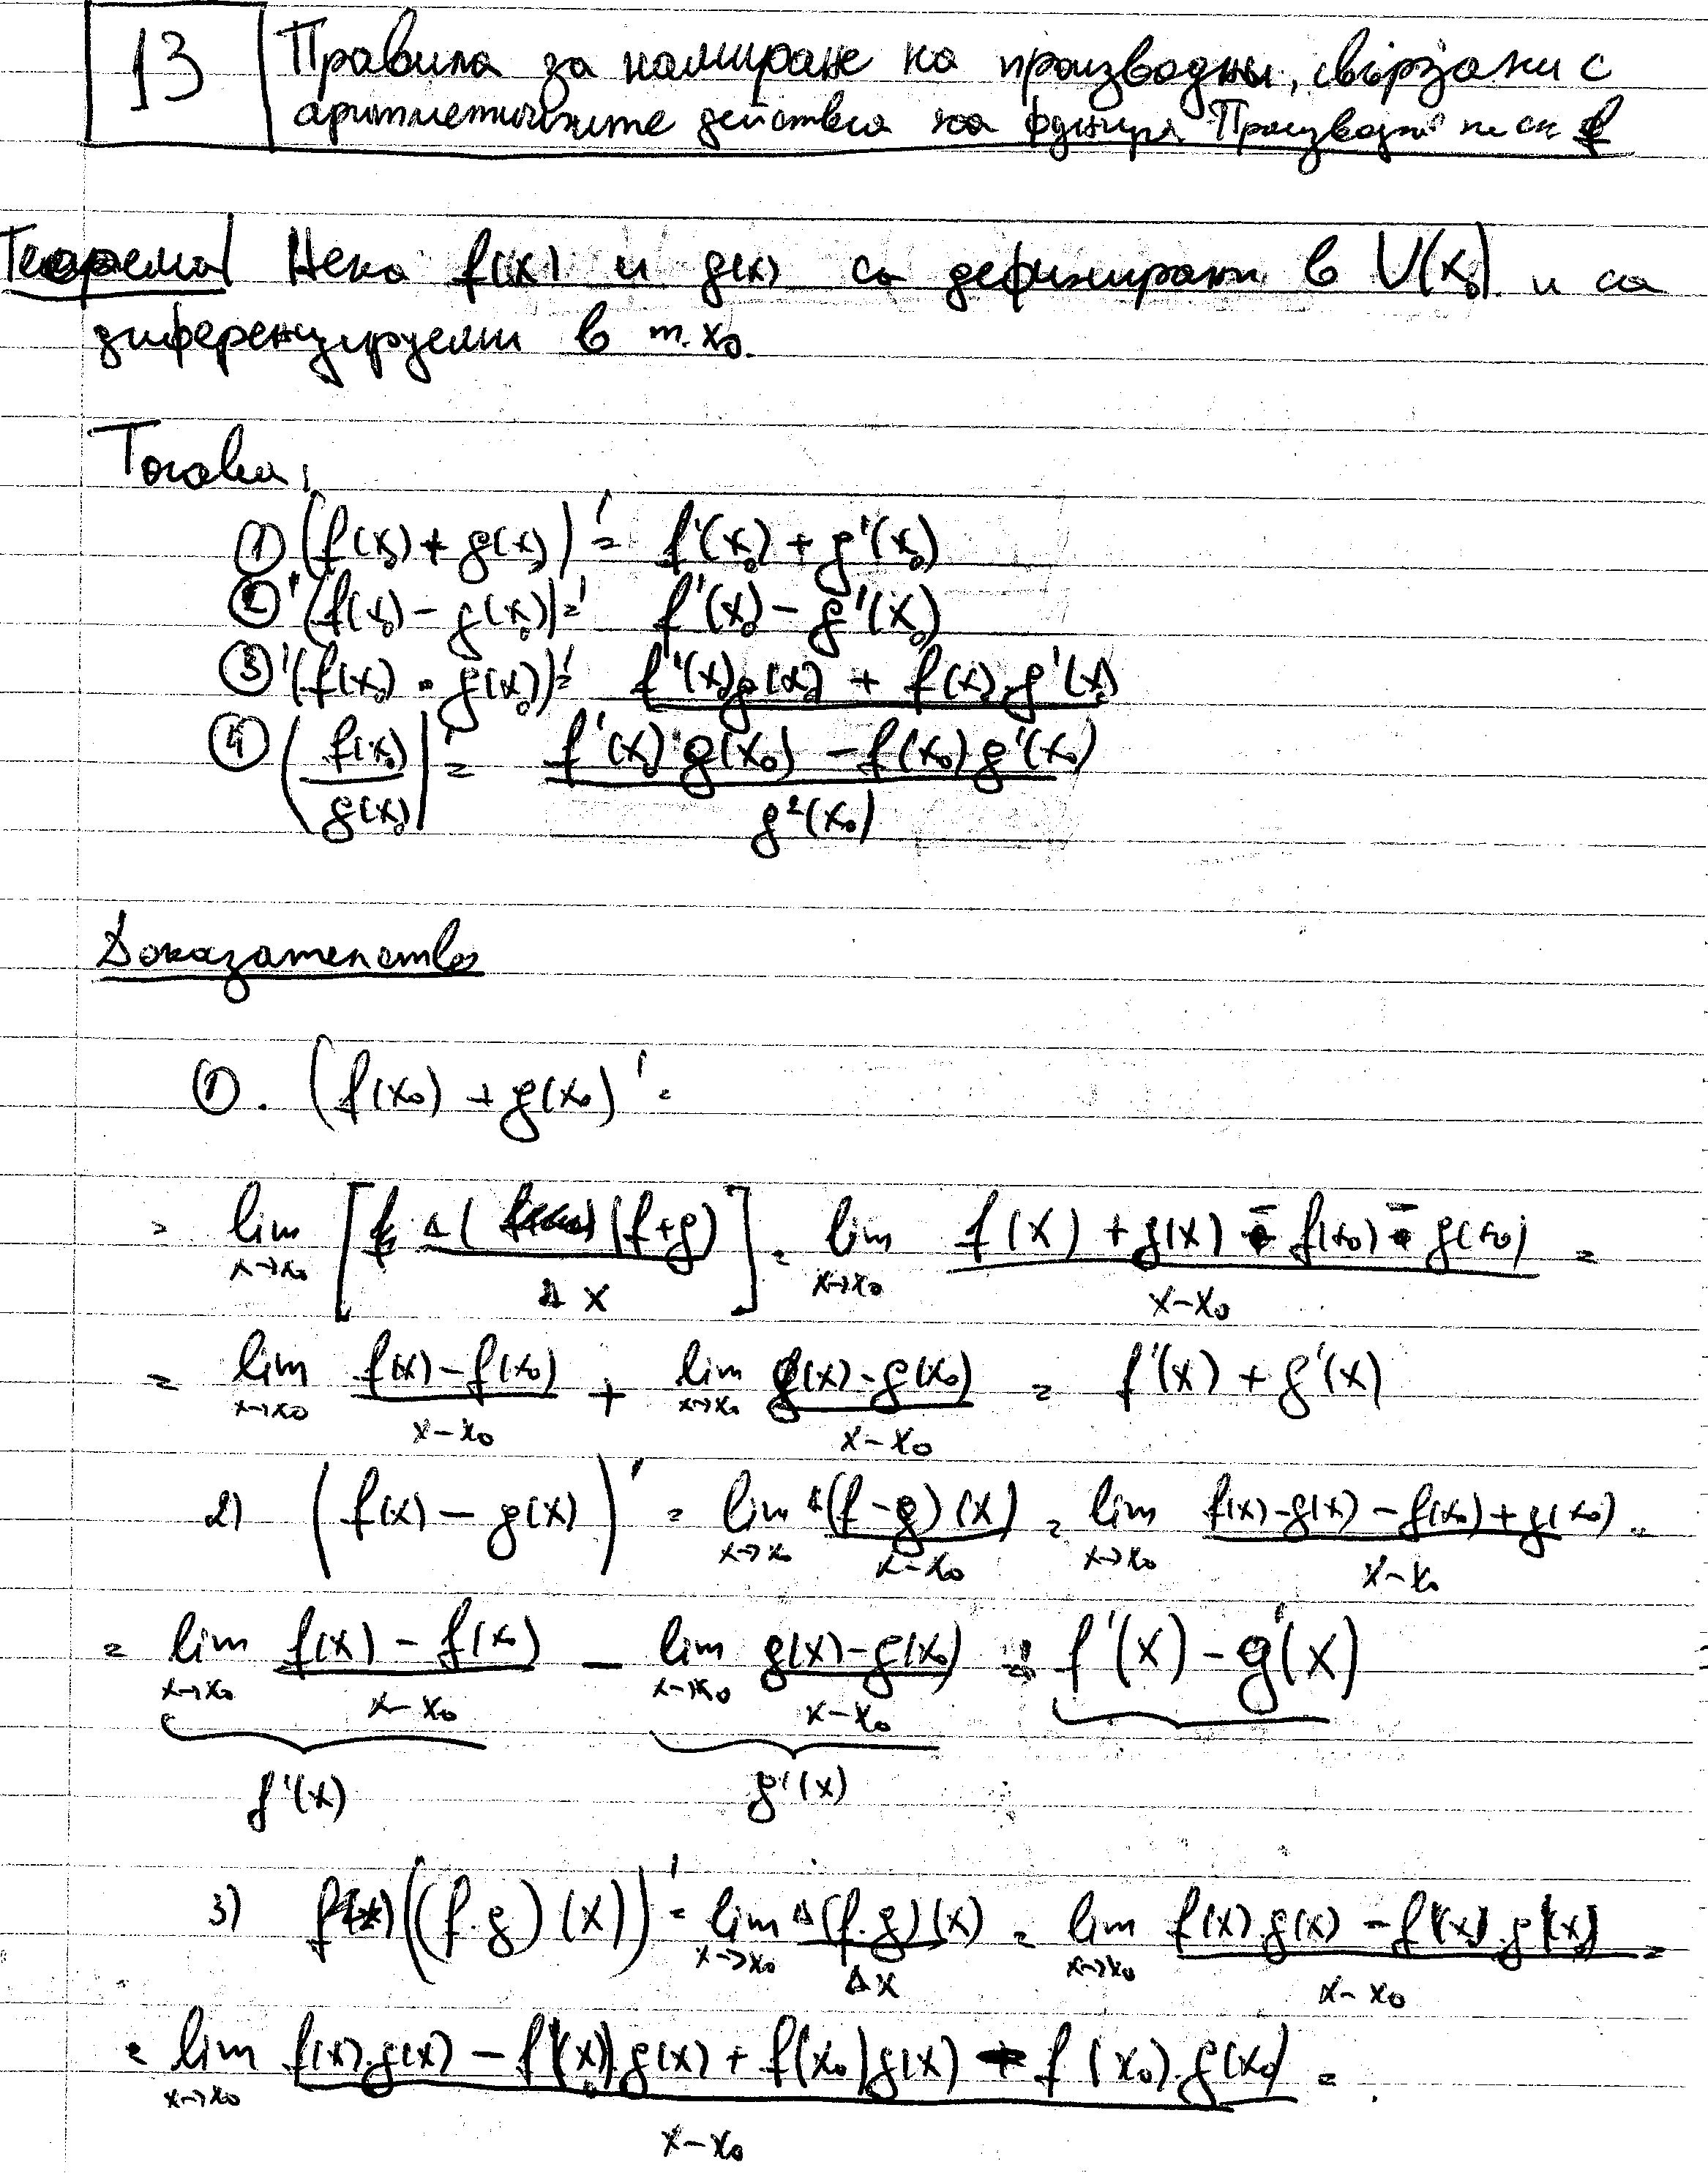 13 Правила за намиране на производни, свързани с
аритметичните действия на функция. Производни на сл. ф
Теорема Нека f(x) и g(x) са дефинирани в U(x₀) и са
диференцируеми в т. x₀.
Тогава,
① (f(x₀) + g(x₀))' = f'(x₀) + g'(x₀)
② (f(x₀) - g(x₀))' = f'(x₀) - g'(x₀)
③ (f(x₀) . g(x₀))' = f'(x₀)g(x₀) + f(x₀).g'(x₀)
④ (f(x₀)/g(x₀))' = (f'(x₀) g(x₀) - f(x₀)g'(x₀))/g²(x₀)
Доказателство
①. (f(x₀) + g(x₀)' =
= lim x→x₀ [Δ(f+g)/Δx] = lim x→x₀ (f(x) + g(x) - f(x₀) - g(x₀))/(x-x₀) =
= lim x→x₀ (f(x) - f(x₀))/(x-x₀) + lim x→x₀ (g(x) - g(x₀))/(x-x₀) = f'(x) + g'(x)
2) (f(x) - g(x))' = lim x→x₀ Δ(f-g)(x)/(x-x₀) = lim x→x₀ (f(x)-g(x) - f(x₀) + g(x₀))/(x-x₀) =
= lim x→x₀ (f(x) - f(x₀))/(x-x₀) - lim x→x₀ (g(x) - g(x₀))/(x-x₀) = f'(x) - g'(x)
f'(x) g'(x)
3) ((f.g)(x))' = lim x→x₀ Δ(f.g)(x)/Δx = lim x→x₀ (f(x).g(x) - f(x₀).g(x₀))/(x-x₀) =
= lim x→x₀ (f(x).g(x) - f(x₀).g(x) + f(x₀)g(x) - f(x₀).g(x₀))/(x-x₀) =